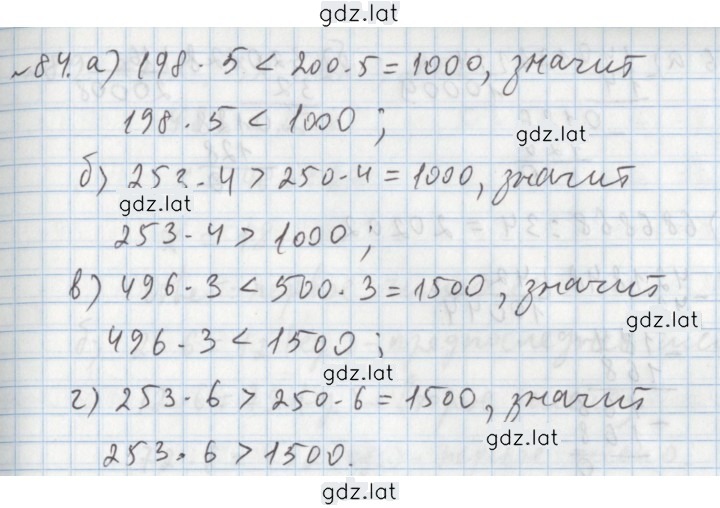 gdz.lat
№84. а) 198 · 5 < 200 · 5 = 1000, значит
198 · 5 < 1000 ;
gdz.lat
б) 253 · 4 > 250 · 4 = 1000, значит
gdz.lat
253 · 4 > 1000 ;
в) 496 · 3 < 500 · 3 = 1500, значит
gdz.lat
496 · 3 < 1500 ;
gdz.lat
г) 253 · 6 > 250 · 6 = 1500, значит
gdz.lat
253 · 6 > 1500.
gdz.lat